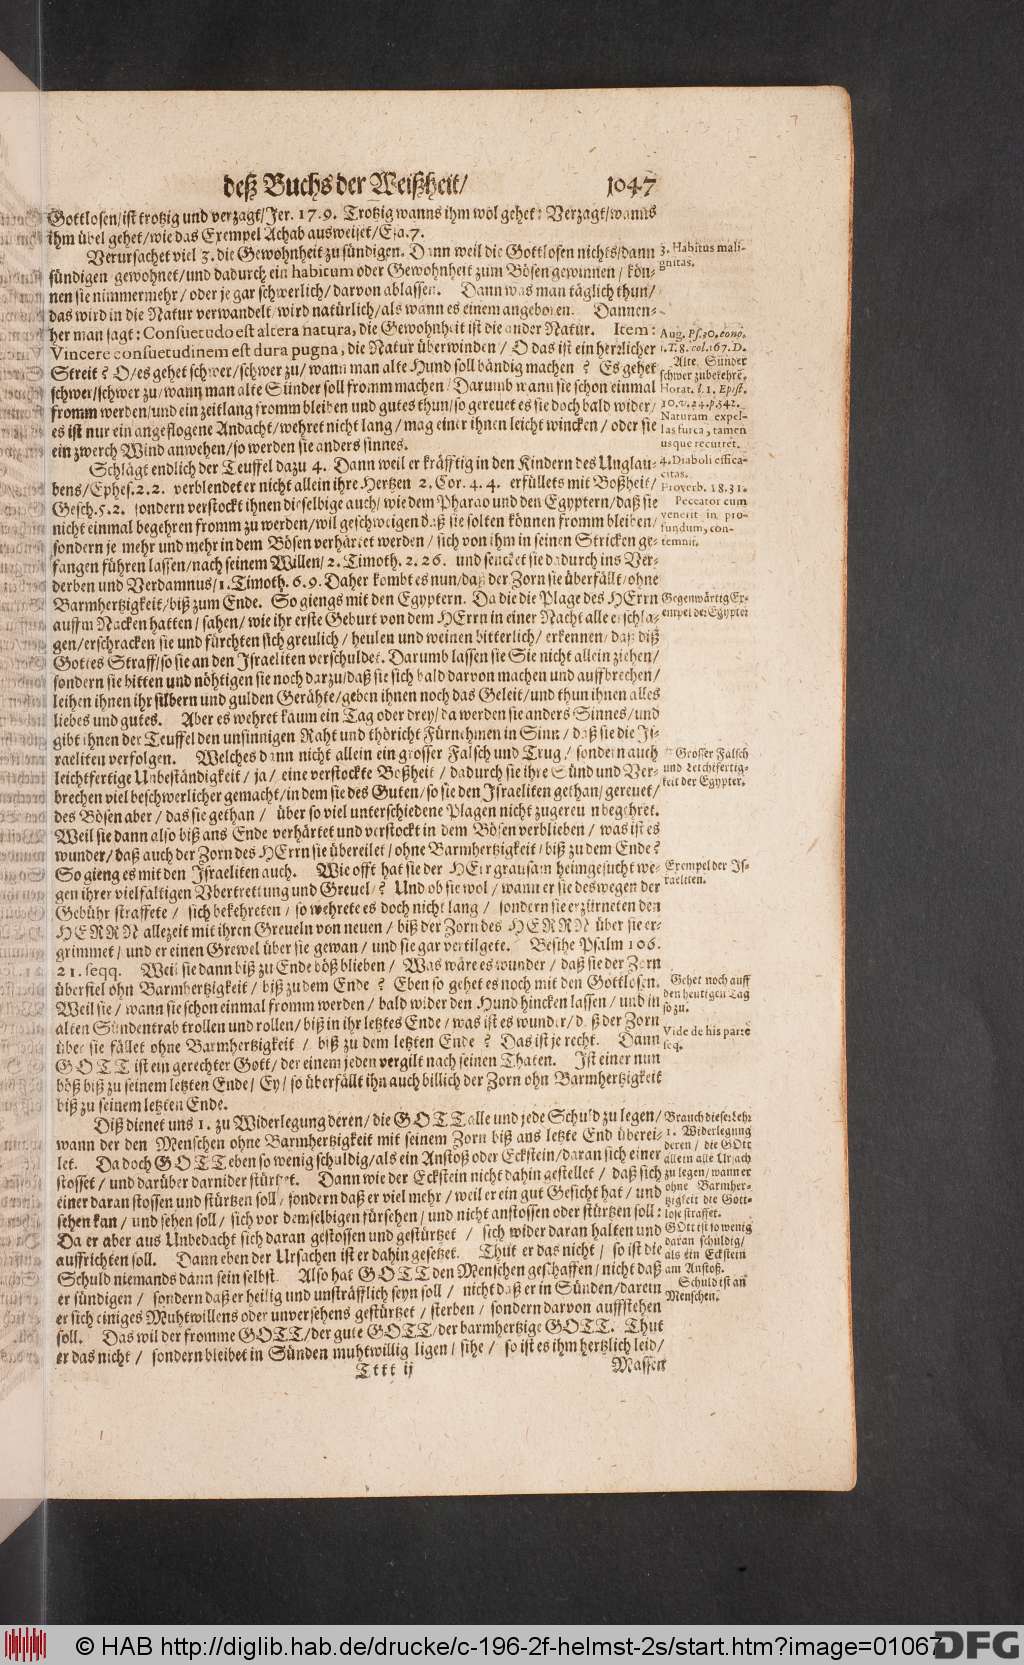 deß Buchs der Weißheit/ 1047
Gottlosen/ist trotzig und verzagt/Jer. 17. 9. Trotzig wanns ihm wol gehet: Verzagt/wanns
ihm übel gehet/wie das Exempel Achab ausweiset/Esa. 7.
Verursachet viel 3. die Gewohnheit zu sündigen. Dann weil die Gottlosen nichts/dann
sündigen gewohnet/und dadurch ein habitum oder Gewohnheit zum Bösen gewinnen/kön-
nen sie nimmermehr/oder je gar schwerlich/darvon ablassen. Dann was man täglich thun/
das wird in die Natur verwandelt/wird natürlich/als wann es einem angeboren. Dannen-
her man sagt: Consuetudo est altera natura, die Gewohnheit ist die ander Natur. Item:
Vincere consuetudinem est dura pugna, die Natur überwinden/O das ist ein hertzlicher
Streit? O/es gehet schwer/schwer zu/wann man alte Hund soll bändig machen? Es gehet
schwer/schwer zu/wann man alte Sünder soll fromm machen/Darumb wann sie schon einmal
fromm werden/und ein zeitlang fromm bleiben und gutes thun/so gereuet es sie doch bald wider/
es ist nur ein angeflogene Andacht/wehret nicht lang/mag einer ihnen leicht wincken/oder sie
ein zwerch Wind anwehen/so werden sie anders sinnes.
Schlägt endlich der Teuffel dazu 4. Dann weil er kräfftig in den Kindern des Unglau-
bens/Ephes. 2. 2. verblendet er nicht allein ihre Hertzen 2. Cor. 4. 4. erfüllets mit Boßheit/
Gesch. 5. 2. sondern verstockt ihnen dieselbige auch/wie dem Pharao und den Egyptern/daß sie
nicht einmal begehren fromm zu werden/wil geschweigen daß sie solten können fromm bleiben/
sondern je mehr und mehr in dem Bösen verhärtet werden/sich von ihm in seinen Stricken ge-
fangen führen lassen/nach seinem Willen/2. Timoth. 2. 26. und sencket sie dadurch ins Ver-
derben und Verdamnus/1. Timoth. 6. 9. Daher kombt es nun/daß der Zorn sie überfällt/ohne
Barmhertzigkeit/biß zum Ende. So giengs mit den Egyptern. Da die die Plage des HErrn
auffm Nacken hatten/sahen/wie ihr erste Geburt von dem HErrn in einer Nacht alle erschla-
gen/erschracken sie und fürchten sich greulich/heulen und weinen bitterlich/erkennen/daß diß
Gottes Straff/so sie an den Israeliten verschuldet. Darumb lassen sie Sie nicht allein ziehen/
sondern sie bitten und nöhtigen sie noch darzu/daß sie sich bald darvon machen und auffbrechen/
leihen ihnen ihr silbern und gulden Gerähte/geben ihnen noch das Geleit/und thun ihnen alles
liebes und gutes. Aber es wehret kaum ein Tag oder drey/da werden sie anders Sinnes/und
gibt ihnen der Teuffel den unsinnigen Raht und thöricht Fürnehmen in Sinn/daß sie die Is-
raeliten verfolgen. Welches dann nicht allein ein grosser Falsch und Trug/sondern auch
leichtfertige Unbeständigkeit/ja/eine verstockte Boßheit/dadurch sie ihre Sünd und Ver-
brechen viel beschwerlicher gemacht/in dem sie des Guten/so sie den Israeliten gethan/gereuet/
des Bösen aber/das sie gethan/über so viel unterschiedene Plagen nicht zugereuen begehret.
Weil sie dann also biß ans Ende verhärtet und verstockt in dem Bösen verblieben/was ist es
wunder/daß auch der Zorn des HErrn sie übereilet/ohne Barmhertzigkeit/biß zu dem Ende?
So gieng es mit den Israeliten auch. Wie offt hat sie der HErr grausam heimgesucht we-
gen ihrer vielfaltigen Vbertrettung und Greuel? Und ob sie wol/wann er sie deswegen der
Gebühr straffete/sich bekehreten/so wehrete es doch nicht lang/sondern sie erzürneten den
HERRN allezeit mit ihren Greueln von neuen/biß der Zorn des HERRN über sie er-
grimmet/und er einen Grewel über sie gewan/und sie gar vertilgete. Besihe Psalm 106.
21. seqq. Weil sie dann biß zu Ende böß blieben/Was wäre es wunder/daß sie der Zorn
überfiel ohn Barmhertzigkeit/biß zu dem Ende? Eben so gehet es noch mit den Gottlosen.
Weil sie/wann sie schon einmal fromm werden/bald wider den Hund hincken lassen/und in
alten Sündentrab trollen und rollen/biß in ihr letztes Ende/was ist es wunder/daß der Zorn
über sie fället ohne Barmhertzigkeit/biß zu dem letzten Ende? Das ist je recht. Dann
GOTT ist ein gerechter Gott/der einem jeden vergilt nach seinen Thaten. Ist einer nun
böß biß zu seinem letzten Ende/Ey/so überfällt ihn auch billich der Zorn ohn Barmhertzigkeit
biß zu seinem letzten Ende.
Diß dienet uns 1. zu Widerlegung deren/die GOTT alle und jede Schuld zu legen/
wann der den Menschen ohne Barmhertzigkeit mit seinem Zorn biß ans letzte End überei-
let. Da doch GOTT eben so wenig schuldig/als ein Anstoß oder Eckstein/daran sich einer
stosset/und darüber darnider stürtzet. Dann wie der Eckstein nicht dahin gestellet/daß sich
einer daran stossen und stürtzen soll/sondern daß er viel mehr/weil er ein gut Gesicht hat/und
sehen kan/und sehen soll/sich vor demselbigen fürsehen/und nicht anstossen oder stürtzen soll:
Da er aber aus Unbedacht sich daran gestossen und gestürtzet/sich wider daran halten und
auffrichten soll. Dann eben der Ursachen ist er dahin gesetzet. Thut er das nicht/so ist die
Schuld niemands dann sein selbst. Also hat GOTT den Menschen geschaffen/nicht daß
er sündigen/sondern daß er heilig und unsträfflich seyn soll/nicht daß er in Sünden/darein
er sich einiges Muhtwillens oder unversehens gestürtzet/sterben/sondern darvon aufstehen
soll. Das wil der fromme GOTT/der gute GOTT/der barmhertzige GOTT. Thut
er das nicht/sondern bleibet in Sünden muhtwillig ligen/sihe/so ist es ihm hertzlich leid/
Tttt ij Massen
3. Habitus mali-
gnitas.
Aug. Ps. 30. conc.
1. T. 8. col. 167. D.
Alte Sünder
schwer zubekehrē.
Horat. l. 1. Epist.
10. v. 24. p. 542.
Naturam expel-
las furca, tamen
usque recurret.
4. Diaboli effica-
citas.
Proverb. 18. 31.
Peccator cum
venerit in pro-
fundum, con-
temnit.
Gegenwärtig Ex-
empel der Egypter
Grosser Falsch
und Leichtfertig-
keit der Egypter.
Exempel der Is-
raeliten.
Gehet noch auff
den heutigen Tag
so zu.
Vide de his parte
seq.
Brauch dieser Lehr
1. Widerlegung
deren/die GOtt
allein alle Ursach
zu legen/wann er
ohne Barmher-
tzigkeit die Gott-
lose straffet.
GOtt ist so wenig
daran schuldig/
als ein Eckstein
am Anstoß.
Schuld ist an
Menschen.
© HAB http://diglib.hab.de/drucke/c-196-2f-helmst-2s/start.htm?image=01067
DFG